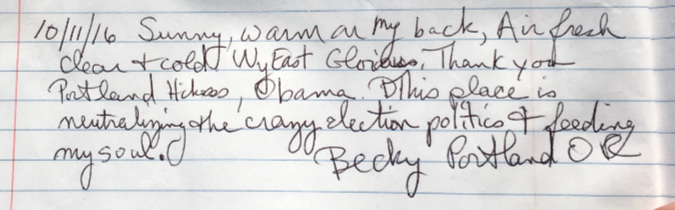 10/11/16 Sunny, warm on my back, Air fresh
clear + cold WyEast Glorious. Thank you
Portland Hikers, Obama. This place is
neutralizing the crazy election politics & feeding
my soul.
Becky Portland OR